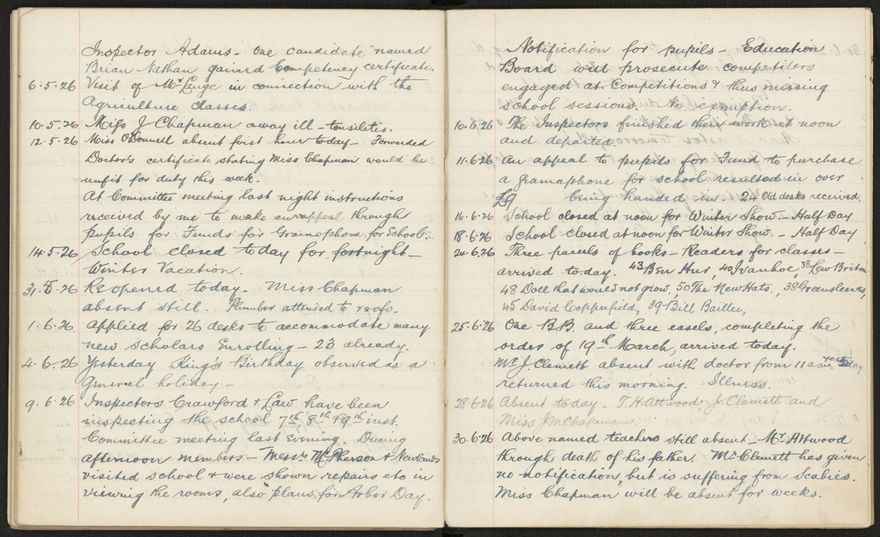 Inspector Adams - one candidate named
Brian Nathan gained Competency certificate.
6.5.26 Visit of Mr Lange in connection with the
Agriculture classes.
10.5.26 Miss J Chapman away ill - tonsilitis.
12.5.26 Miss O'Donnell absent first hour today - Forwarded
Doctor's certificate stating Miss Chapman would be
unfit for duty this week.
At Committee meeting last night instructions
received by me to make an appeal through
pupils for Funds for Gramophone for School.
14.5.26 School closed today for fortnight -
Winter Vacation.
31.5.26 Reopened today. Miss Chapman
absent still. Plumber attended to roofs.
1.6.26 Applied for 26 desks to accommodate many
new scholars Enrolling - 23 already.
4.6.26 Yesterday King's Birthday observed as a
general holiday -
9.6.26 Inspectors Crawford & Law have been
inspecting the school 7th 8th & 9th inst.
Committee meeting last Evening. During
afternoon members - Messrs McPherson & Newlands
visited school & were shown repairs etc in
viewing the rooms, also plans for Arbor Day.
Notification for pupils - Education
Board will prosecute competitors
engaged at Competitions & thus missing
school sessions. No exemption.
10.6.26 The Inspectors finished their work at noon
and departed.
11.6.26 An appeal to pupils for Fund to purchase
a gramaphone for school resulted in over
£9 being handed in. 24 Old desks received.
16.6.26 School closed at noon for Winter Show. - Half Day
18.6.26 School closed at noon for Winter Show. - Half Day
24.6.26 Three parcels of books - Readers for classes -
arrived today. 43 Ben Hur, 40 Ivanhoe, 38
48 Doll that would not grow, 50 The New Hats, 38
45 David Copperfield, 39 Bill Bailey,
25.6.26 One B.B. and three easels, completing the
order of 19th March, arrived today.
Mr J. Clemett absent with doctor from 11 a.m. yesterday
returned this morning. Illness.
28.6.26 Absent today - T.H. Attwood, J Clemett and
Miss J M Chapman.
30.6.26 Above named teachers still absent - Mr Attwood
through death of his father. Mr Clemett has given
no notification, but is suffering from Scabies.
Miss Chapman will be absent for weeks.